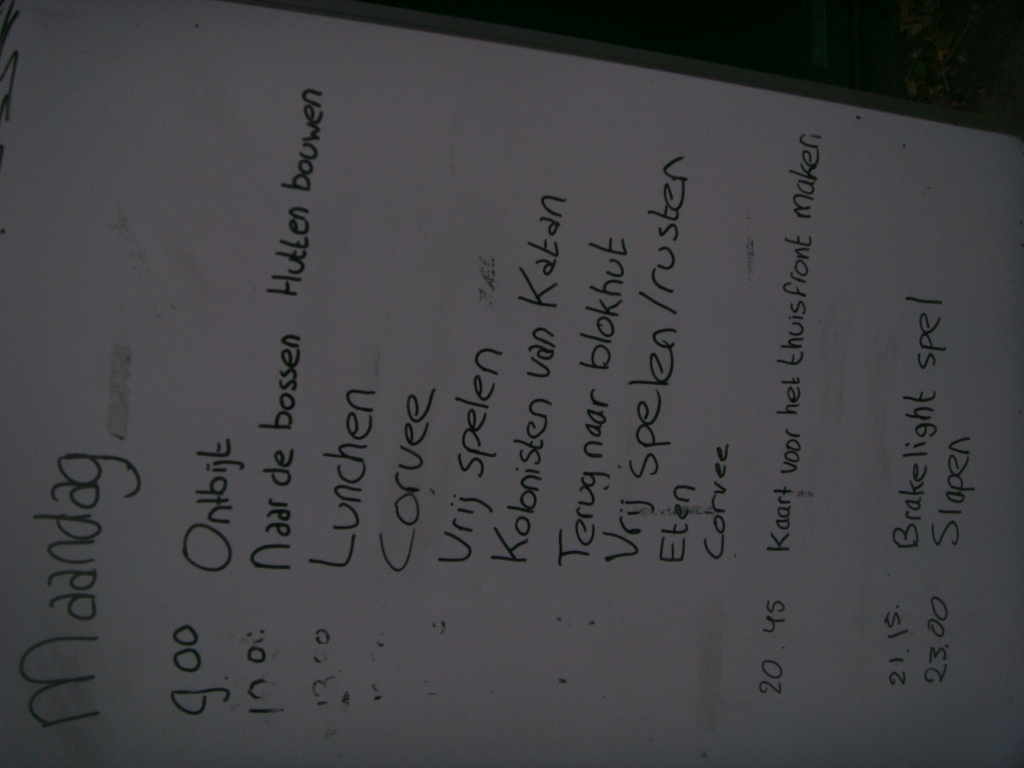 Maandag
9.00 Ontbijt
Naar de bossen Hutten bouwen
13.00 Lunchen
Corvee
Vrij spelen
Kolonisten van Katan
Terug naar blokhut
Vrij spelen/rusten
Eten
Corvee
20.45 Kaart voor het thuisfront maken
21.15. Brakelight spel
23.00 Slapen